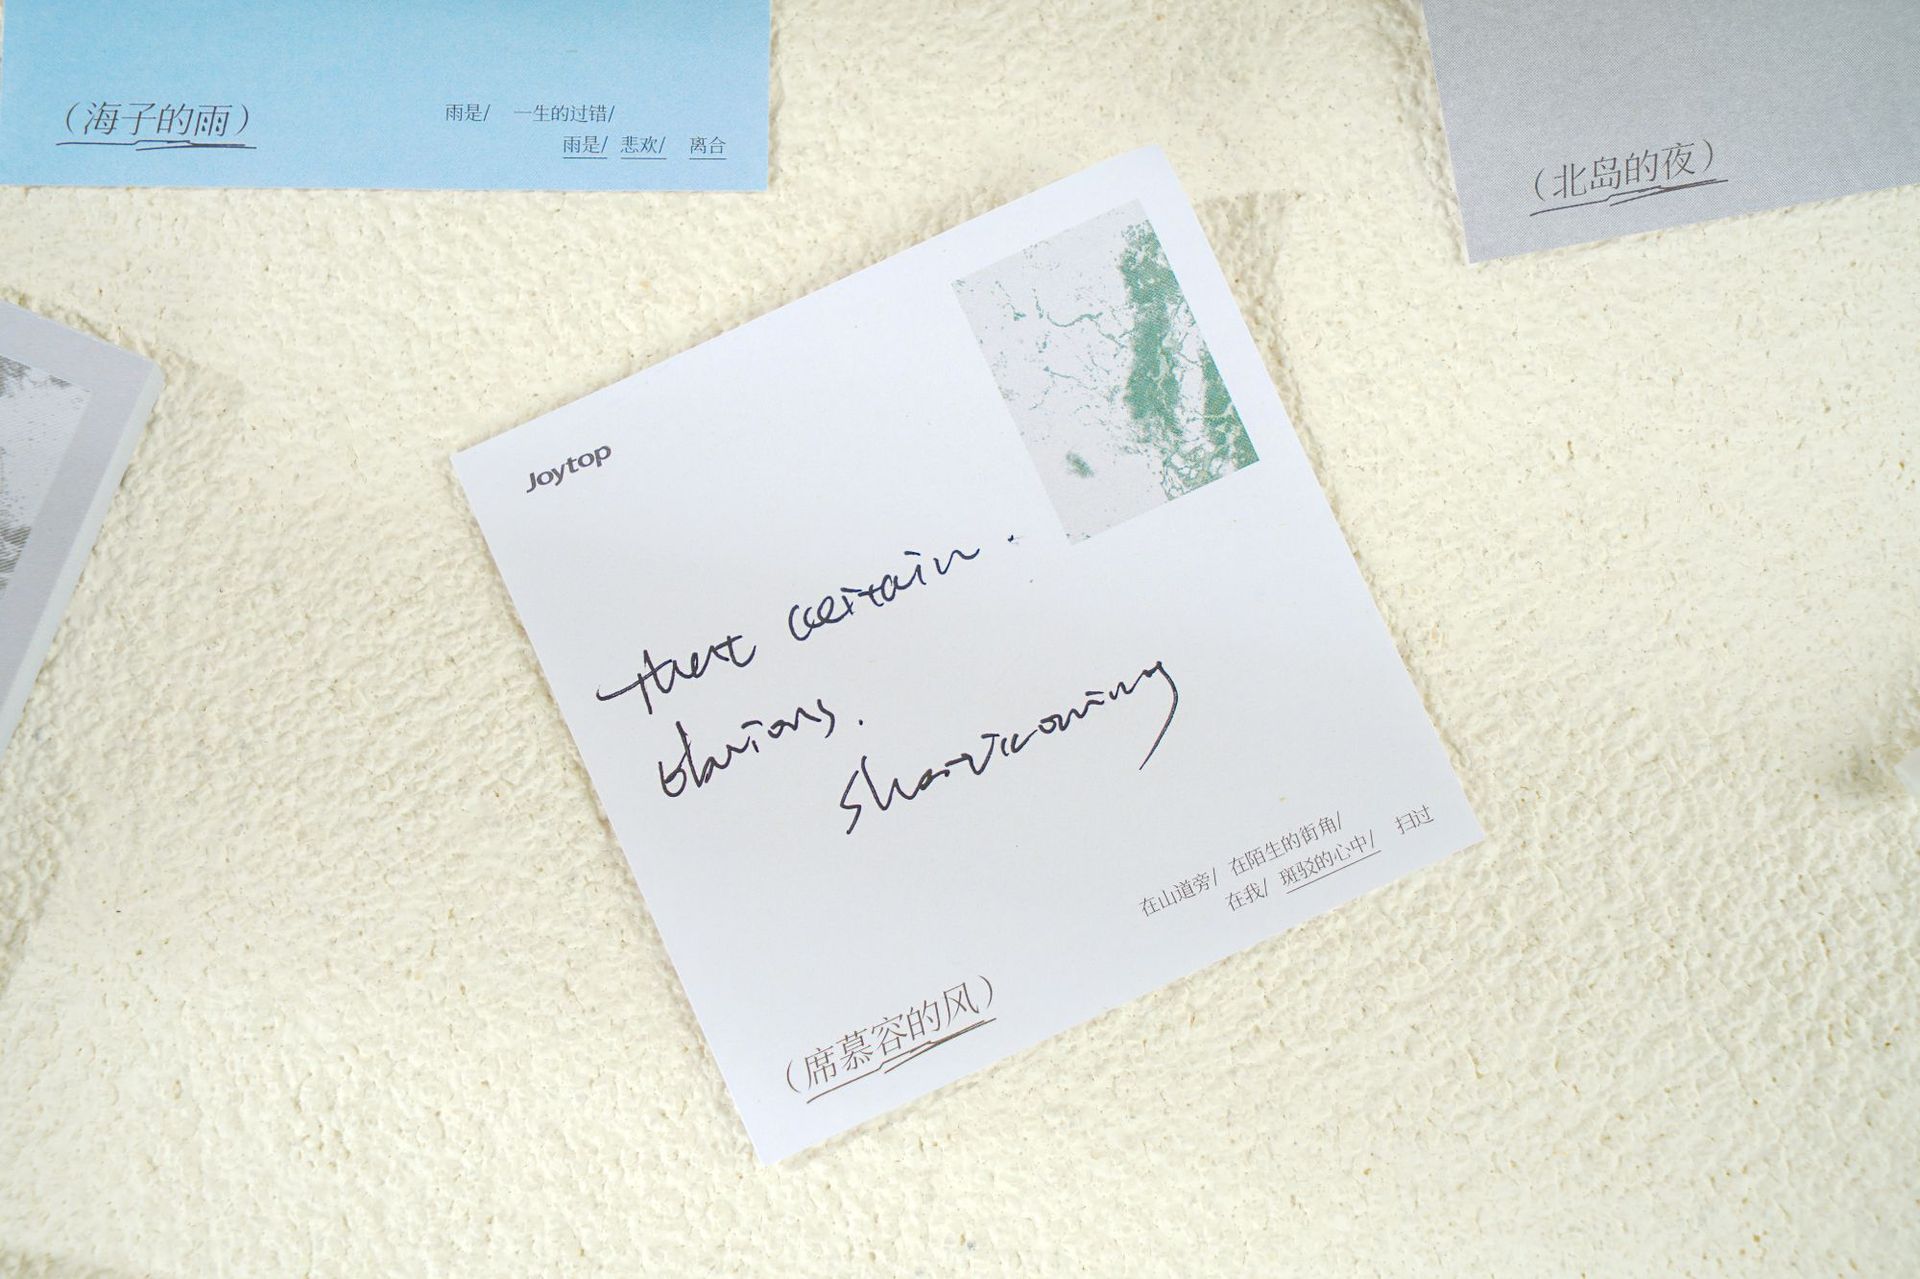 (海子的雨)
雨是/ 一生的过错/
雨是/ 悲欢/ 离合
(北岛的夜)
Joytop
that certain.
obvious.
在山道旁/ 在陌生的街角/
在我/ 斑驳的心中/ 扫过
(席慕容的风)